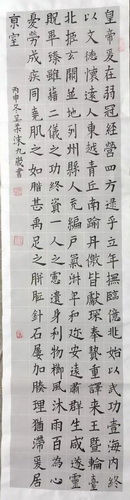 皇帝爰在弱冠經營四方逮乎立年撫臨億兆始以武功壹海內終
以文德懷遠人東越青丘南踰丹徼皆獻琛奉贄重譯來王暨輪臺
北拒玄闕並地列州縣人充編戶氣淑年和迩安遠肅群生咸遂靈
貺畢臻雖藉二儀之功終資一人之慮遺身利物櫛風沐雨百姓為心
憂勞成疾同堯肌之如腊甚禹足之胼胝針石屢加腠理猶滯爰居
京室
丙申冬